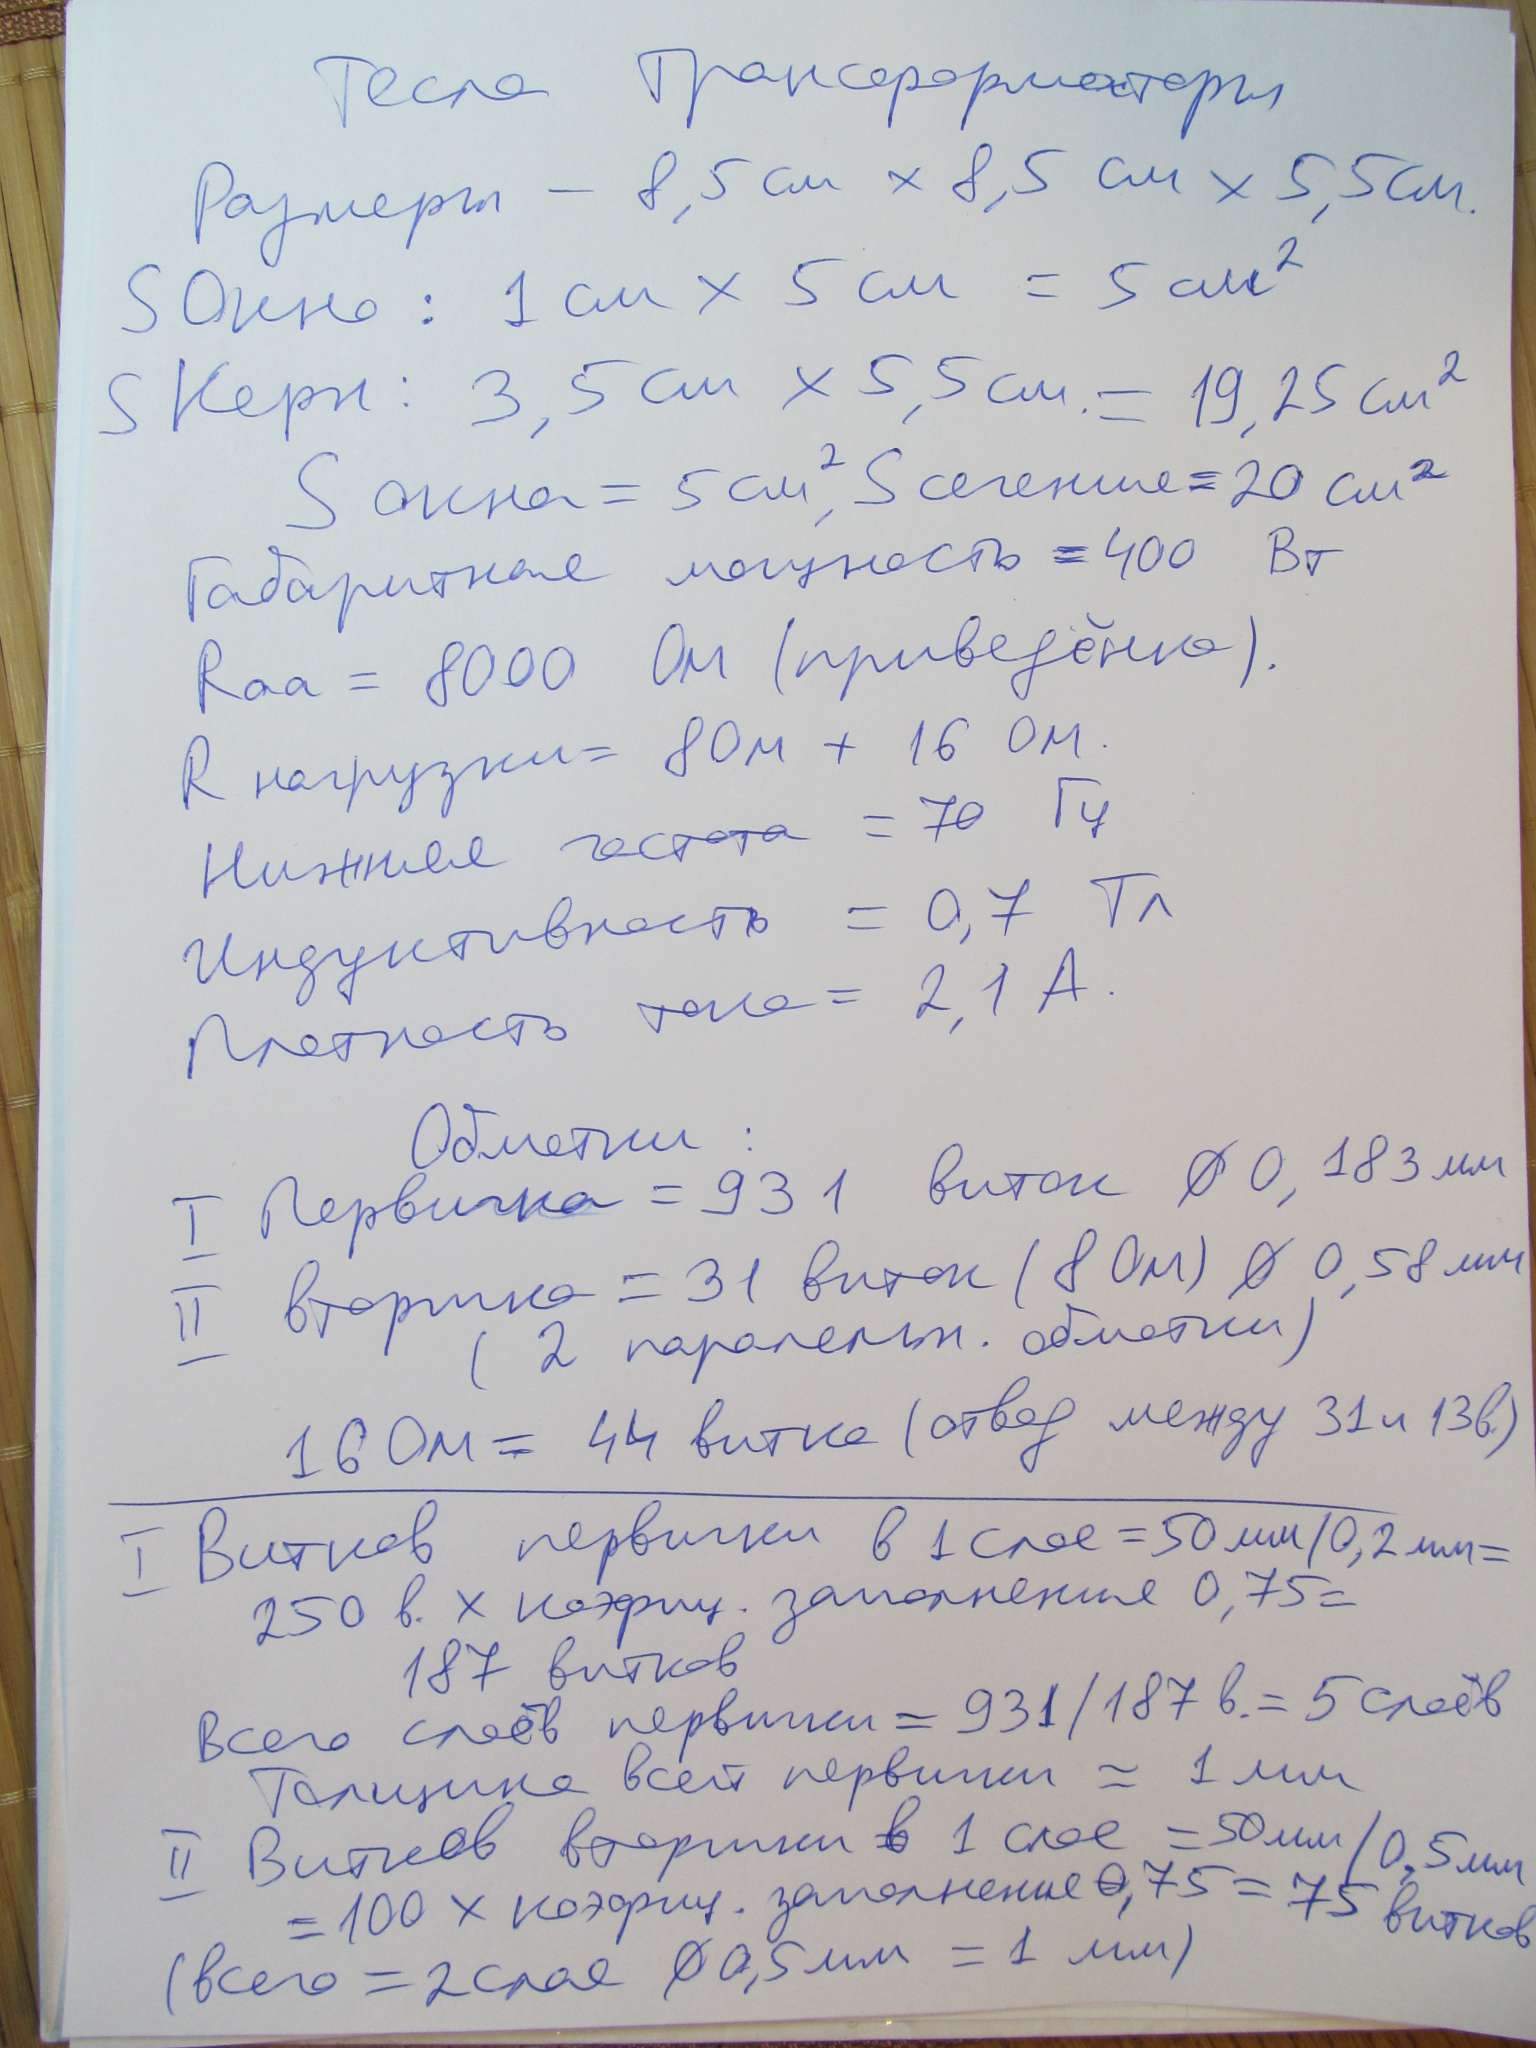 Тесла Трансформаторы
Размеры – 8,5 см × 8,5 см × 5,5 см.
S Окно: 1 см × 5 см = 5 см²
S Керн: 3,5 см × 5,5 см. = 19,25 см²
S окна = 5 см², S сечение = 20 см²
Габаритная мощность = 400 Вт
Raa = 8000 Ом (приведёнка).
R нагрузки = 8 Ом + 16 Ом.
Нижняя частота = 70 Гц
Индуктивность = 0,7 Тл
Плотность тока = 2,1 А.
Обмотки:
I Первичка = 931 виток Ø 0,183 мм
II вторичка = 31 виток (8 Ом) Ø 0,58 мм
(2 паралельн. обмотки)
16 Ом = 44 витка (отвод между 31 и 13 в.)
I Витков первички в 1 слое = 50 мм/0,2 мм =
250 в. × коэфиц. заполнение 0,75 =
187 витков
Всего слоёв первички = 931/187 в. = 5 слоёв
Толщина всей первички ≈ 1 мм
II Витков вторички в 1 слое = 50 мм/0,5 мм
= 100 × коэфиц. заполнение 0,75 = 75 витков
(всего = 2 слоя Ø 0,5 мм = 1 мм)